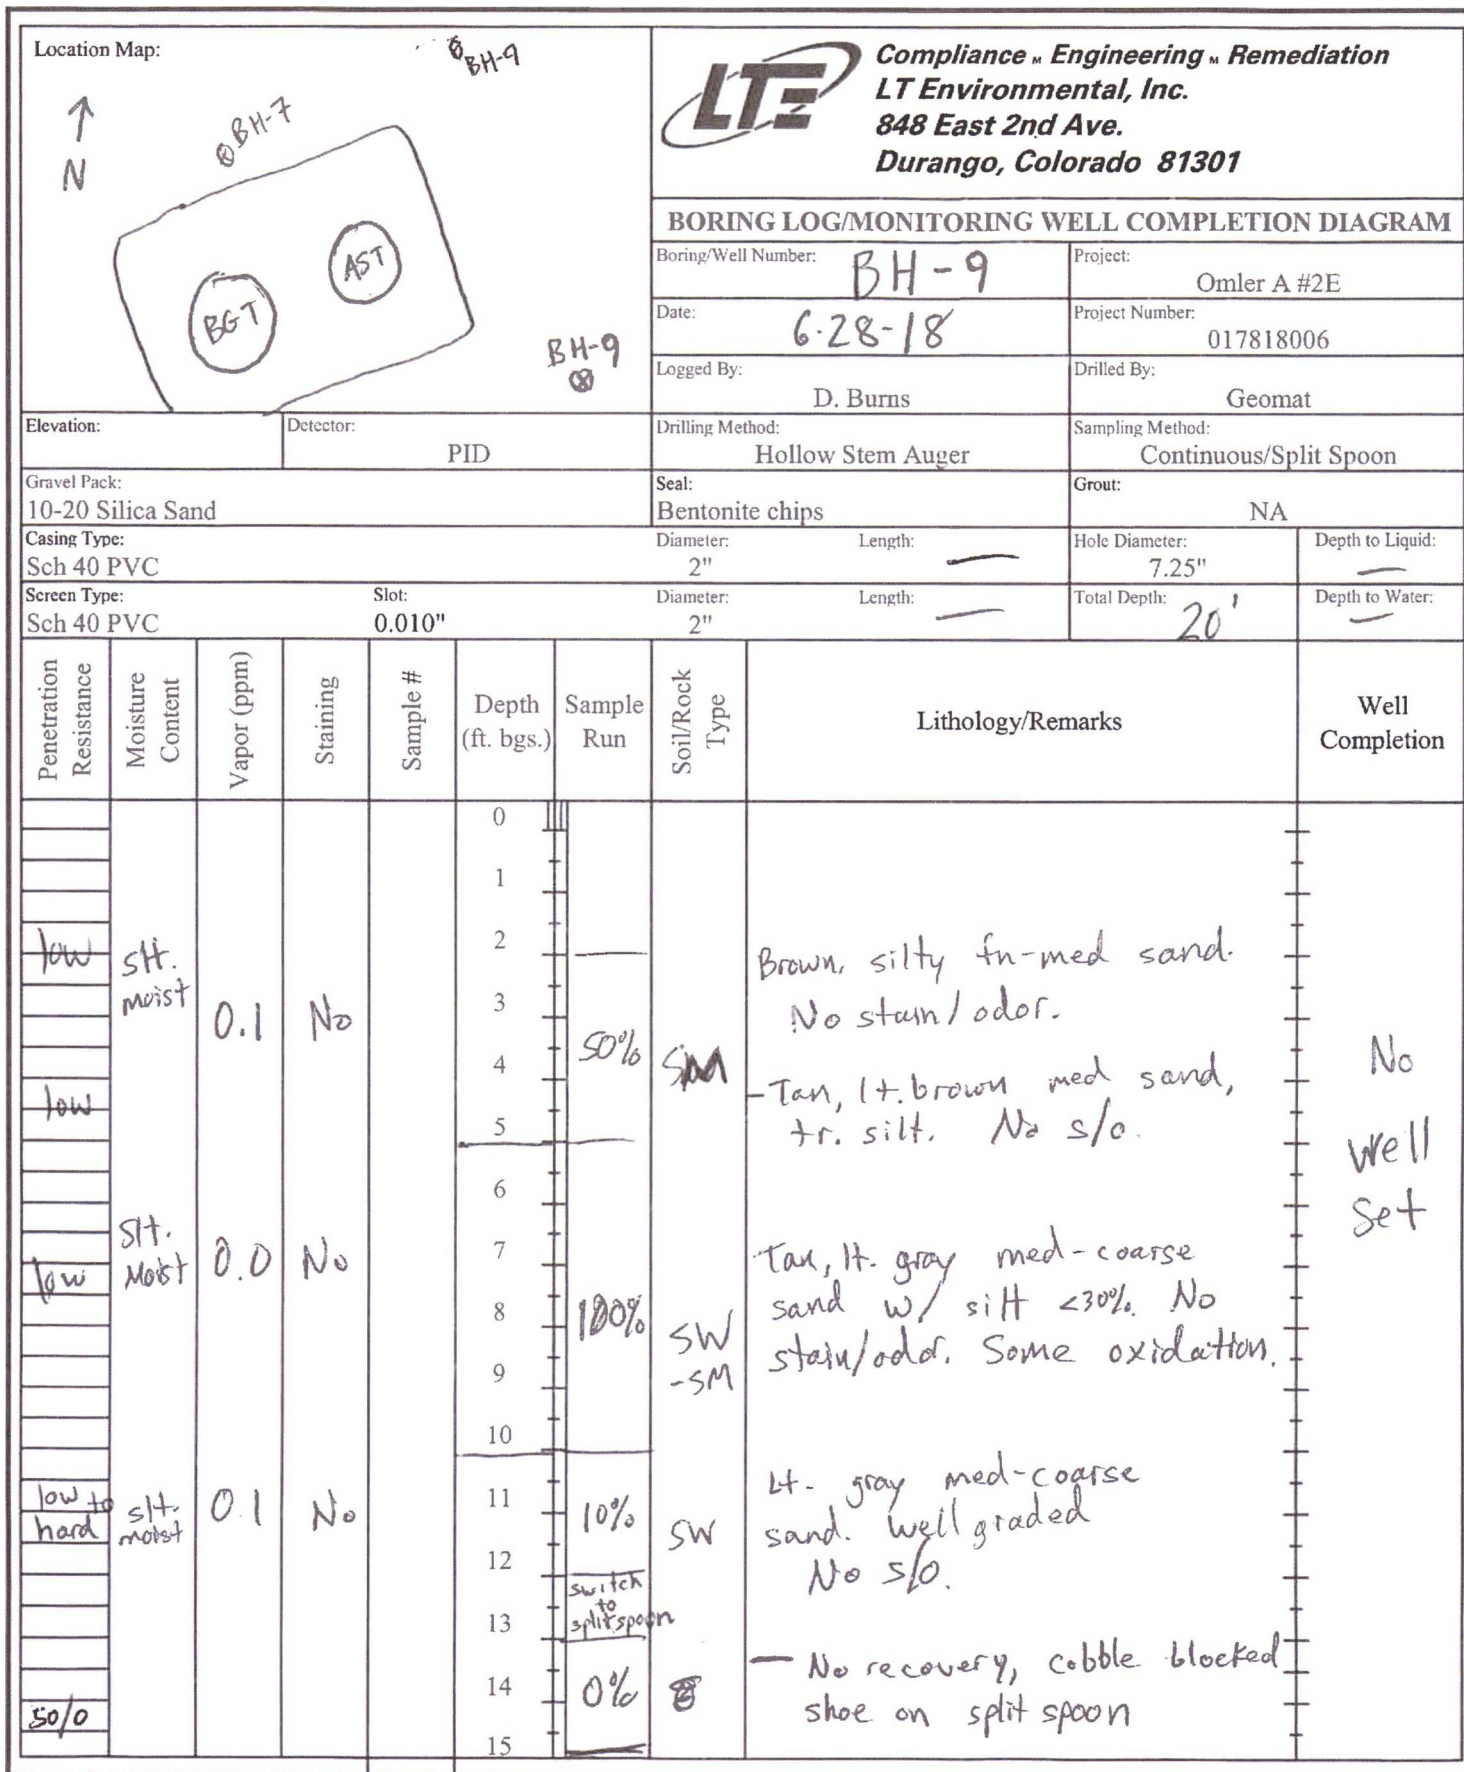 Location Map:
BH-9
BH-7
N
AST
BGT
BH-9
LTE
Compliance M Engineering M Remediation
LT Environmental, Inc.
848 East 2nd Ave.
Durango, Colorado 81301
BORING LOG/MONITORING WELL COMPLETION DIAGRAM
Boring/Well Number: BH-9
Project: Omler A #2E
Date: 6-28-18
Project Number: 017818006
Logged By: D. Burns
Drilled By: Geomat
Elevation:
Detector: PID
Drilling Method: Hollow Stem Auger
Sampling Method: Continuous/Split Spoon
Gravel Pack: 10-20 Silica Sand
Seal: Bentonite chips
Grout: NA
Casing Type: Sch 40 PVC
Diameter: 2"
Length: —
Hole Diameter: 7.25"
Depth to Liquid: —
Screen Type: Sch 40 PVC
Slot: 0.010"
Diameter: 2"
Length: —
Total Depth: 20'
Depth to Water: —
Penetration Resistance
Moisture Content
Vapor (ppm)
Staining
Sample #
Depth (ft. bgs.)
Sample Run
Soil/Rock Type
Lithology/Remarks
Well Completion
0
1
2
low
slt.
moist
Brown, silty fn-med sand.
3
0.1
No
No stain/odor.
4
50%
SM
-Tan, lt. brown med sand,
low
tr. silt. No s/o.
5
6
7
low
slt.
moist
0.0
No
Tan, lt. gray med-coarse
8
100%
SW
-SM
sand w/ silt <30%. No
9
stain/odor. Some oxidation.
10
11
low to
hard
slt.
moist
0.1
No
10%
SW
Lt. gray med-coarse
sand. Well graded
12
No s/o.
switch
to
splitspoon
13
— No recovery, cobble blocked
14
0%
shoe on split spoon
50/0
15
No
Well
Set